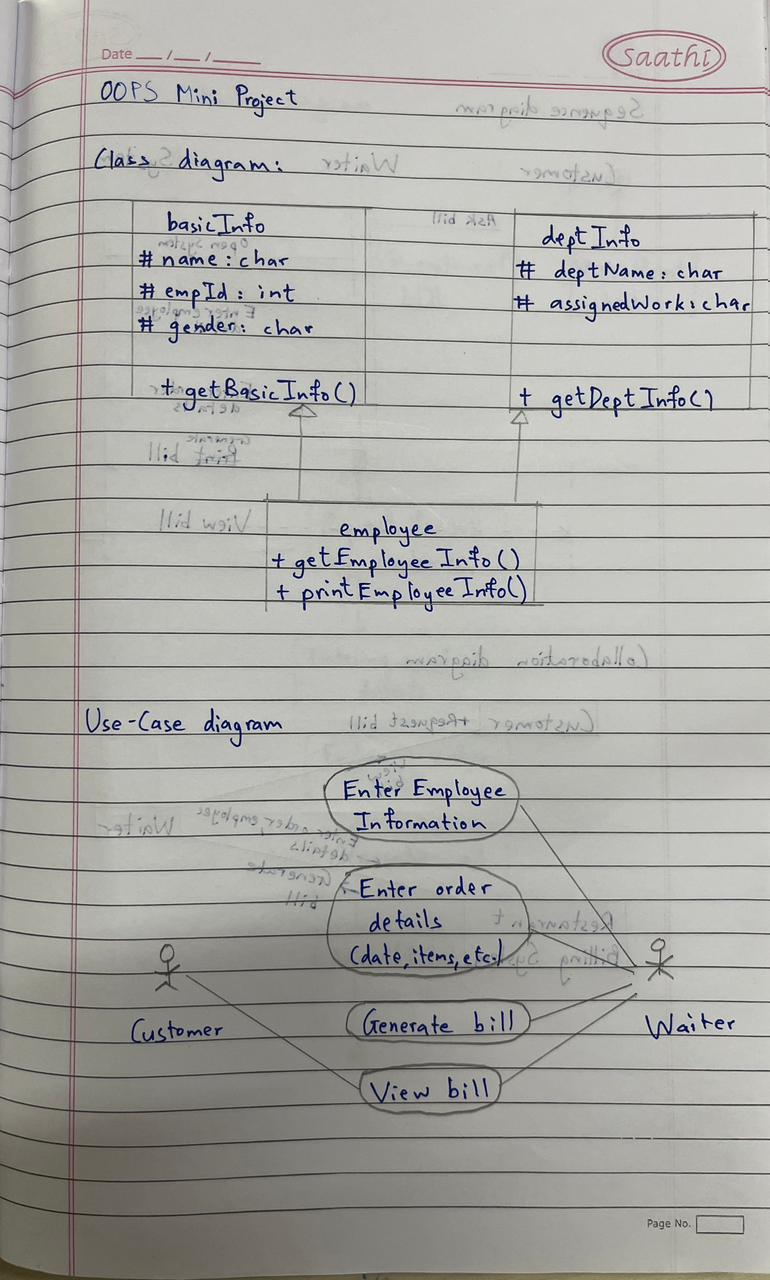 Date __/__/____
Saathi
OOPS Mini Project
Class diagram:
basicInfo
# name : char
# empId : int
# gender : char
+ getBasicInfo()
deptInfo
# deptName : char
# assignedWork : char
+ getDeptInfo()
employee
+ getEmployeeInfo()
+ printEmployeeInfo()
Use-Case diagram
Enter Employee
Information
Enter order
details
(date, items, etc.)
Customer
Generate bill
Waiter
View bill
Page No.